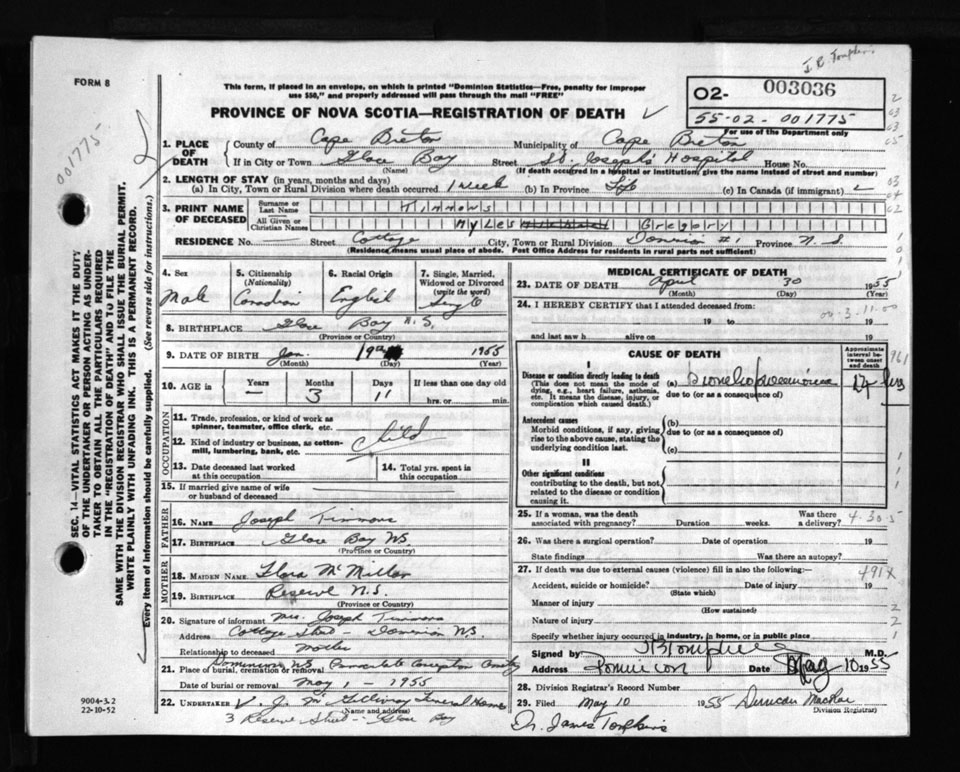 J. B. Tompkins
FORM 8
This form, if placed in an envelope, on which is printed "Dominion Statistics—Free, penalty for improper
use $50," and properly addressed will pass through the mail "FREE"
O2- 003036
55-02-001775
For use of the Department only
PROVINCE OF NOVA SCOTIA—REGISTRATION OF DEATH
001775
1. PLACE OF DEATH
County of Cape Breton Municipality of Cape Breton
If in City or Town Glace Bay Street St. Joseph's Hospital House No.
(Name) (If death occurred in a hospital or institution, give the name instead of street and number)
2. LENGTH OF STAY (in years, months and days)
(a) In City, Town or Rural Division where death occurred 1 week (b) In Province Life (c) In Canada (if immigrant)
3. PRINT NAME OF DECEASED
Surname or Last Name Timmons
All Given or Christian Names Myles Gregory
RESIDENCE No. — Street Cottage City, Town or Rural Division Dominion #1 Province N.S.
(Residence means usual place of abode. Post Office Address for residents in rural parts not sufficient)
4. Sex Male
5. Citizenship (Nationality) Canadian
6. Racial Origin English
7. Single, Married, Widowed or Divorced (write the word) Single
8. BIRTHPLACE Glace Bay N.S.
(Province or Country)
9. DATE OF BIRTH Jan. 19 1955
(Month) (Day) (Year)
10. AGE in Years — Months 3 Days 11 If less than one day old
hrs. or min.
OCCUPATION
11. Trade, profession, or kind of work as
spinner, teamster, office clerk, etc.
12. Kind of industry or business, as cotton-
mill, lumbering, bank, etc.
Child
13. Date deceased last worked
at this occupation
14. Total yrs. spent in
this occupation
15. If married give name of wife
or husband of deceased
FATHER
16. NAME Joseph Timmons
17. BIRTHPLACE Glace Bay NS
(Province or Country)
MOTHER
18. MAIDEN NAME Flora McMillan
19. BIRTHPLACE Reserve N.S.
(Province or Country)
20. Signature of informant Mrs. Joseph Timmons
Address Cottage Street – Dominion NS.
Relationship to deceased Mother
21. Place of burial, cremation or removal Dominion NS Immaculate Conception
Date of burial or removal May 1 - 1955
22. UNDERTAKER V. J. McGillivray Funeral Home
(Name and address)
3 Reserve Street – Glace Bay
MEDICAL CERTIFICATE OF DEATH
23. DATE OF DEATH April 30 1955
(Month) (Day) (Year)
24. I HEREBY CERTIFY that I attended deceased from:
19 to 19
and last saw h alive on 19
CAUSE OF DEATH
Approximate interval between onset and death
I
Disease or condition directly leading to death
(This does not mean the mode of
dying, e.g., heart failure, asthenia,
etc. It means the disease, injury, or
complication which caused death.)
(a) Bronchopneumonia
due to (or as a consequence of)
Antecedent causes
Morbid conditions, if any, giving
rise to the above cause, stating the
underlying condition last.
(b)
due to (or as a consequence of)
(c)
II
Other significant conditions
contributing to the death, but not
related to the disease or condition
causing it.
25. If a woman, was the death
associated with pregnancy? Duration weeks. Was there
a delivery?
4-30-5
26. Was there a surgical operation? Date of operation 19
State findings Was there an autopsy?
27. If death was due to external causes (violence) fill in also the following:
491X
Accident, suicide or homicide? Date of injury 19
(State which)
Manner of injury
(How sustained)
Nature of injury
Specify whether injury occurred in industry, in home, or in public place
Signed by J B Tompkins M.D.
Address Dominion Date May 10 1955
28. Division Registrar's Record Number
29. Filed May 10 1955 Duncan MacRae
Division Registrar
Dr. James Tompkins
SEC. 14—VITAL STATISTICS ACT MAKES IT THE DUTY
OF THE UNDERTAKER OR PERSON ACTING AS UNDER-
TAKER TO OBTAIN ALL THE PARTICULARS REQUIRED
IN THE "REGISTRATION OF DEATH" AND TO FILE THE
SAME WITH THE DIVISION REGISTRAR WHO SHALL ISSUE THE BURIAL PERMIT.
WRITE PLAINLY WITH UNFADING INK. THIS IS A PERMANENT RECORD.
Every item of information should be carefully supplied. (See reverse side for instructions.)
9004-3.2
22-10-52